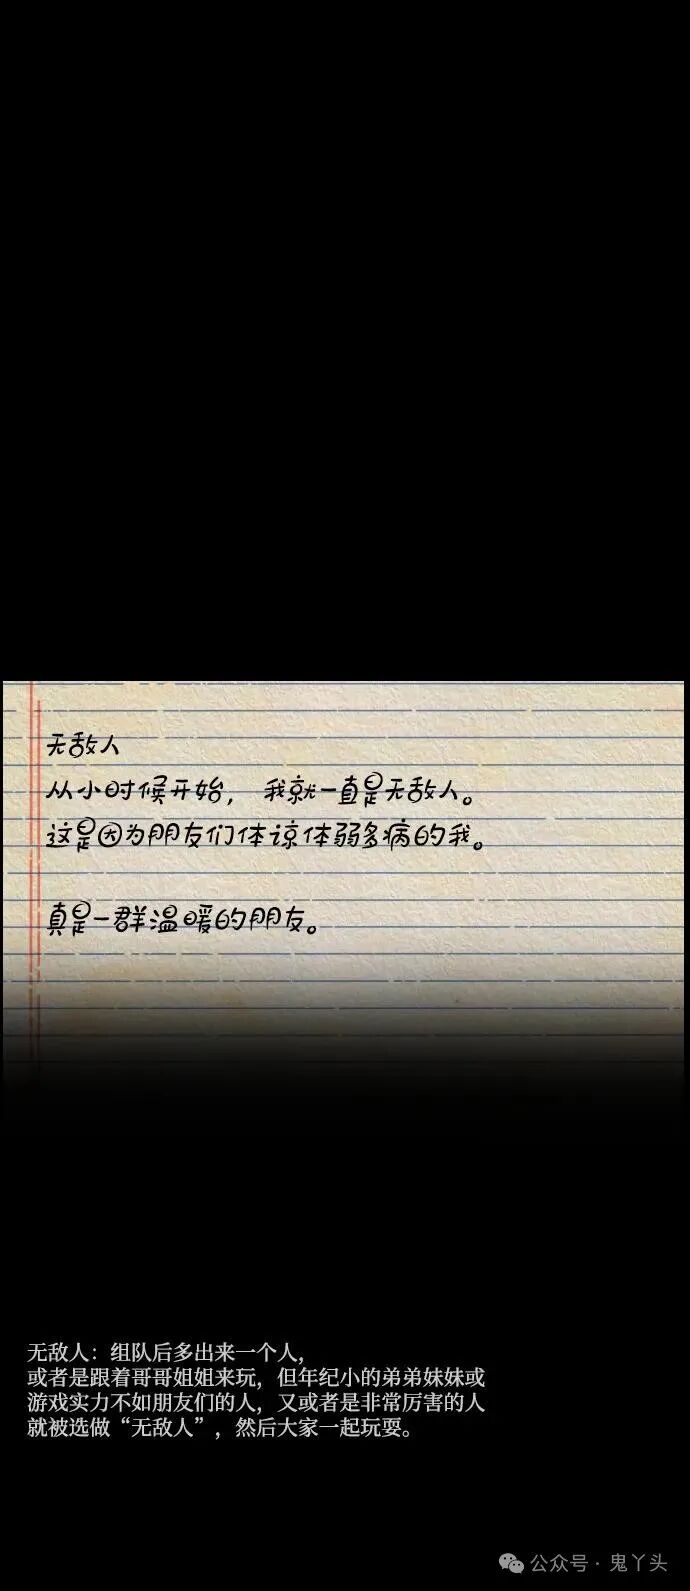 无敌人
从小时候开始，我就一直是无敌人。
这是因为朋友们体谅体弱多病的我。
真是一群温暖的朋友。
无敌人：组队后多出来一个人，
或者是跟着哥哥姐姐来玩，但年纪小的弟弟妹妹或
游戏实力不如朋友们的人，又或者是非常厉害的人
就被选做“无敌人”，然后大家一起玩耍。
公众号·鬼丫头